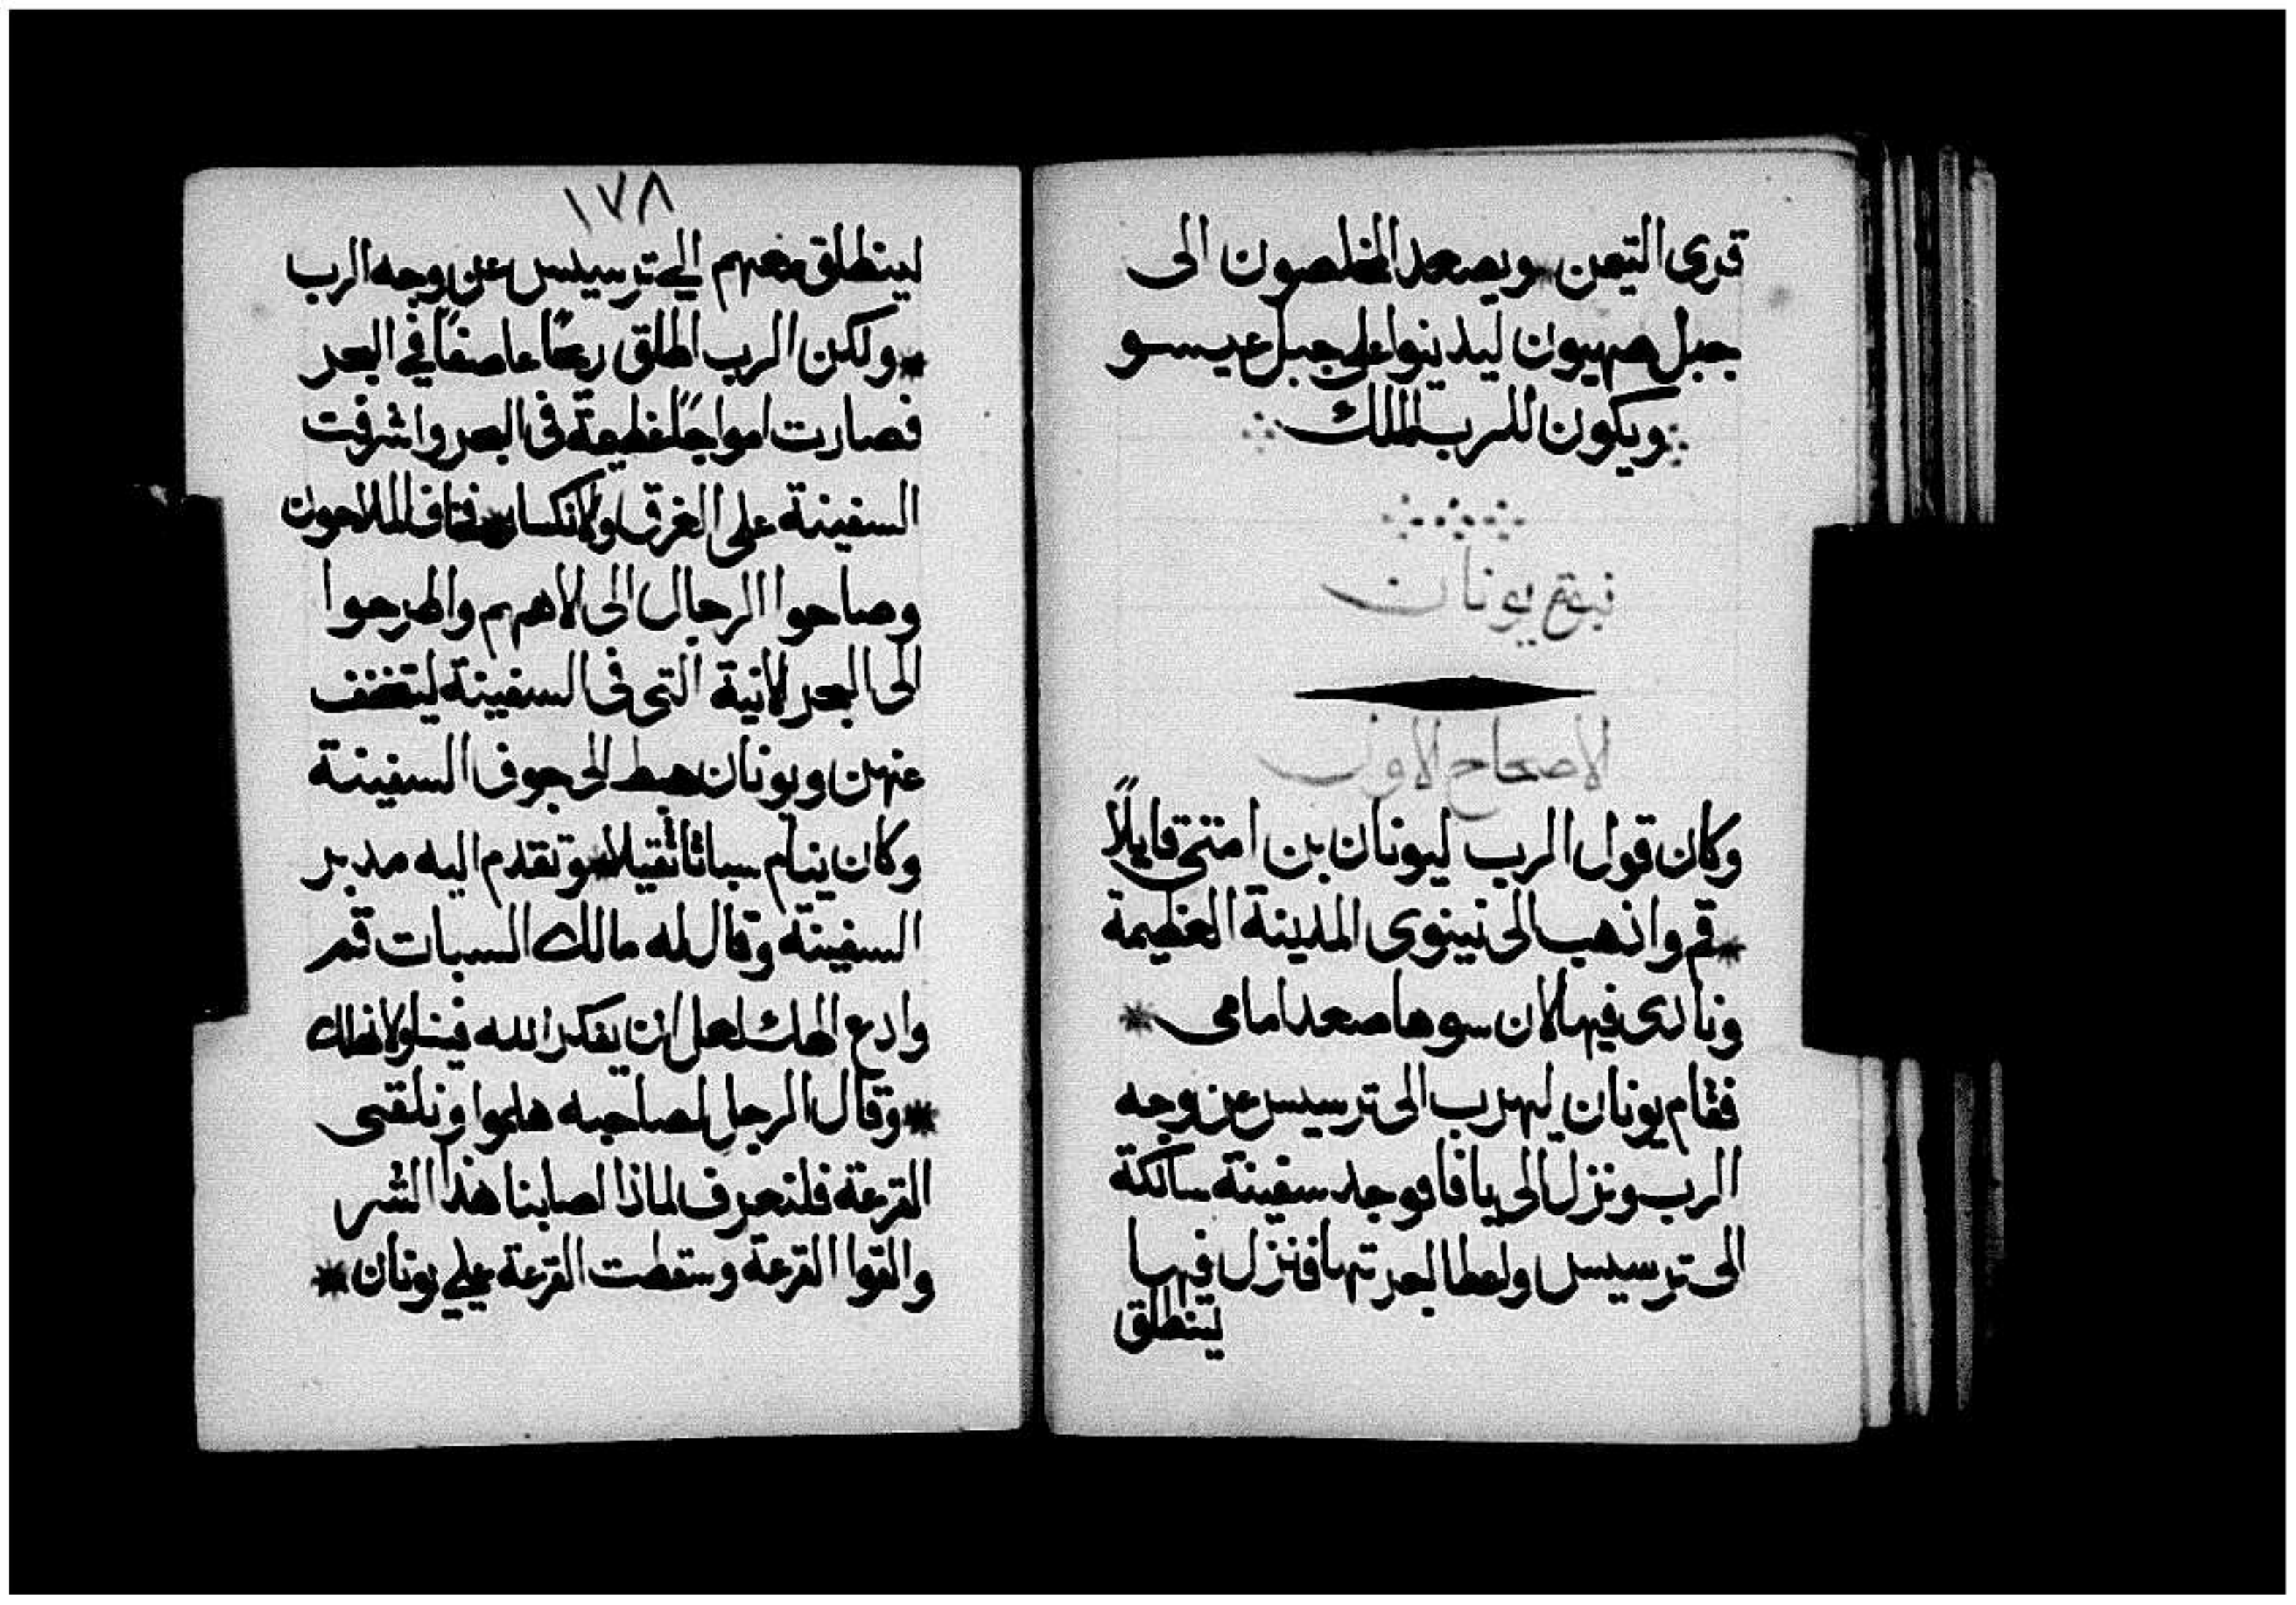 قرى التيمن * ويصعد المخلصون الى
جبل صهيون ليدينوا على جبل عيسو
ويكون للرب الملك
نبوة يونان
الاصحاح الاول
وكان قول الرب ليونان بن امتى قايلاً
* قم واذهب الى نينوى المدينة العظيمة
ونادى فيها لان سوها صعد امامى *
فقام يونان ليهرب الى ترسيس عن وجه
الرب ونزل الى يافا فوجد سفينة سالكة
الى ترسيس واعطا اجرتها فانزل فيها
لينطلق
١٧٨
لينطلق معهم الى ترسيس عن وجه الرب
* ولكن الرب اطلق ريحًا عاصفًا في البحر
فصارت امواجًا عظيمة فى البحر واشرفت
السفينة على الغرق والانكسار * فخاف الملاحون
وصاحوا الرجال الى الاههم واطرحوا
الى البحر الانية التى فى السفينة ليتخفف
عنهن ويونان هبط الى جوف السفينة
وكان ينام سباتا ثقيلا * وتقدم اليه مدبر
السفينة وقال له مالك السبات قم
وادع الهك لعل ان يفكر الله فينا ولا نهلك
* وقال الرجل لصاحبه هلموا ونلقى
القرعة فلنعرف لماذا اصابنا هذا الشر
والقوا القرعة وسقطت القرعة علي يونان *